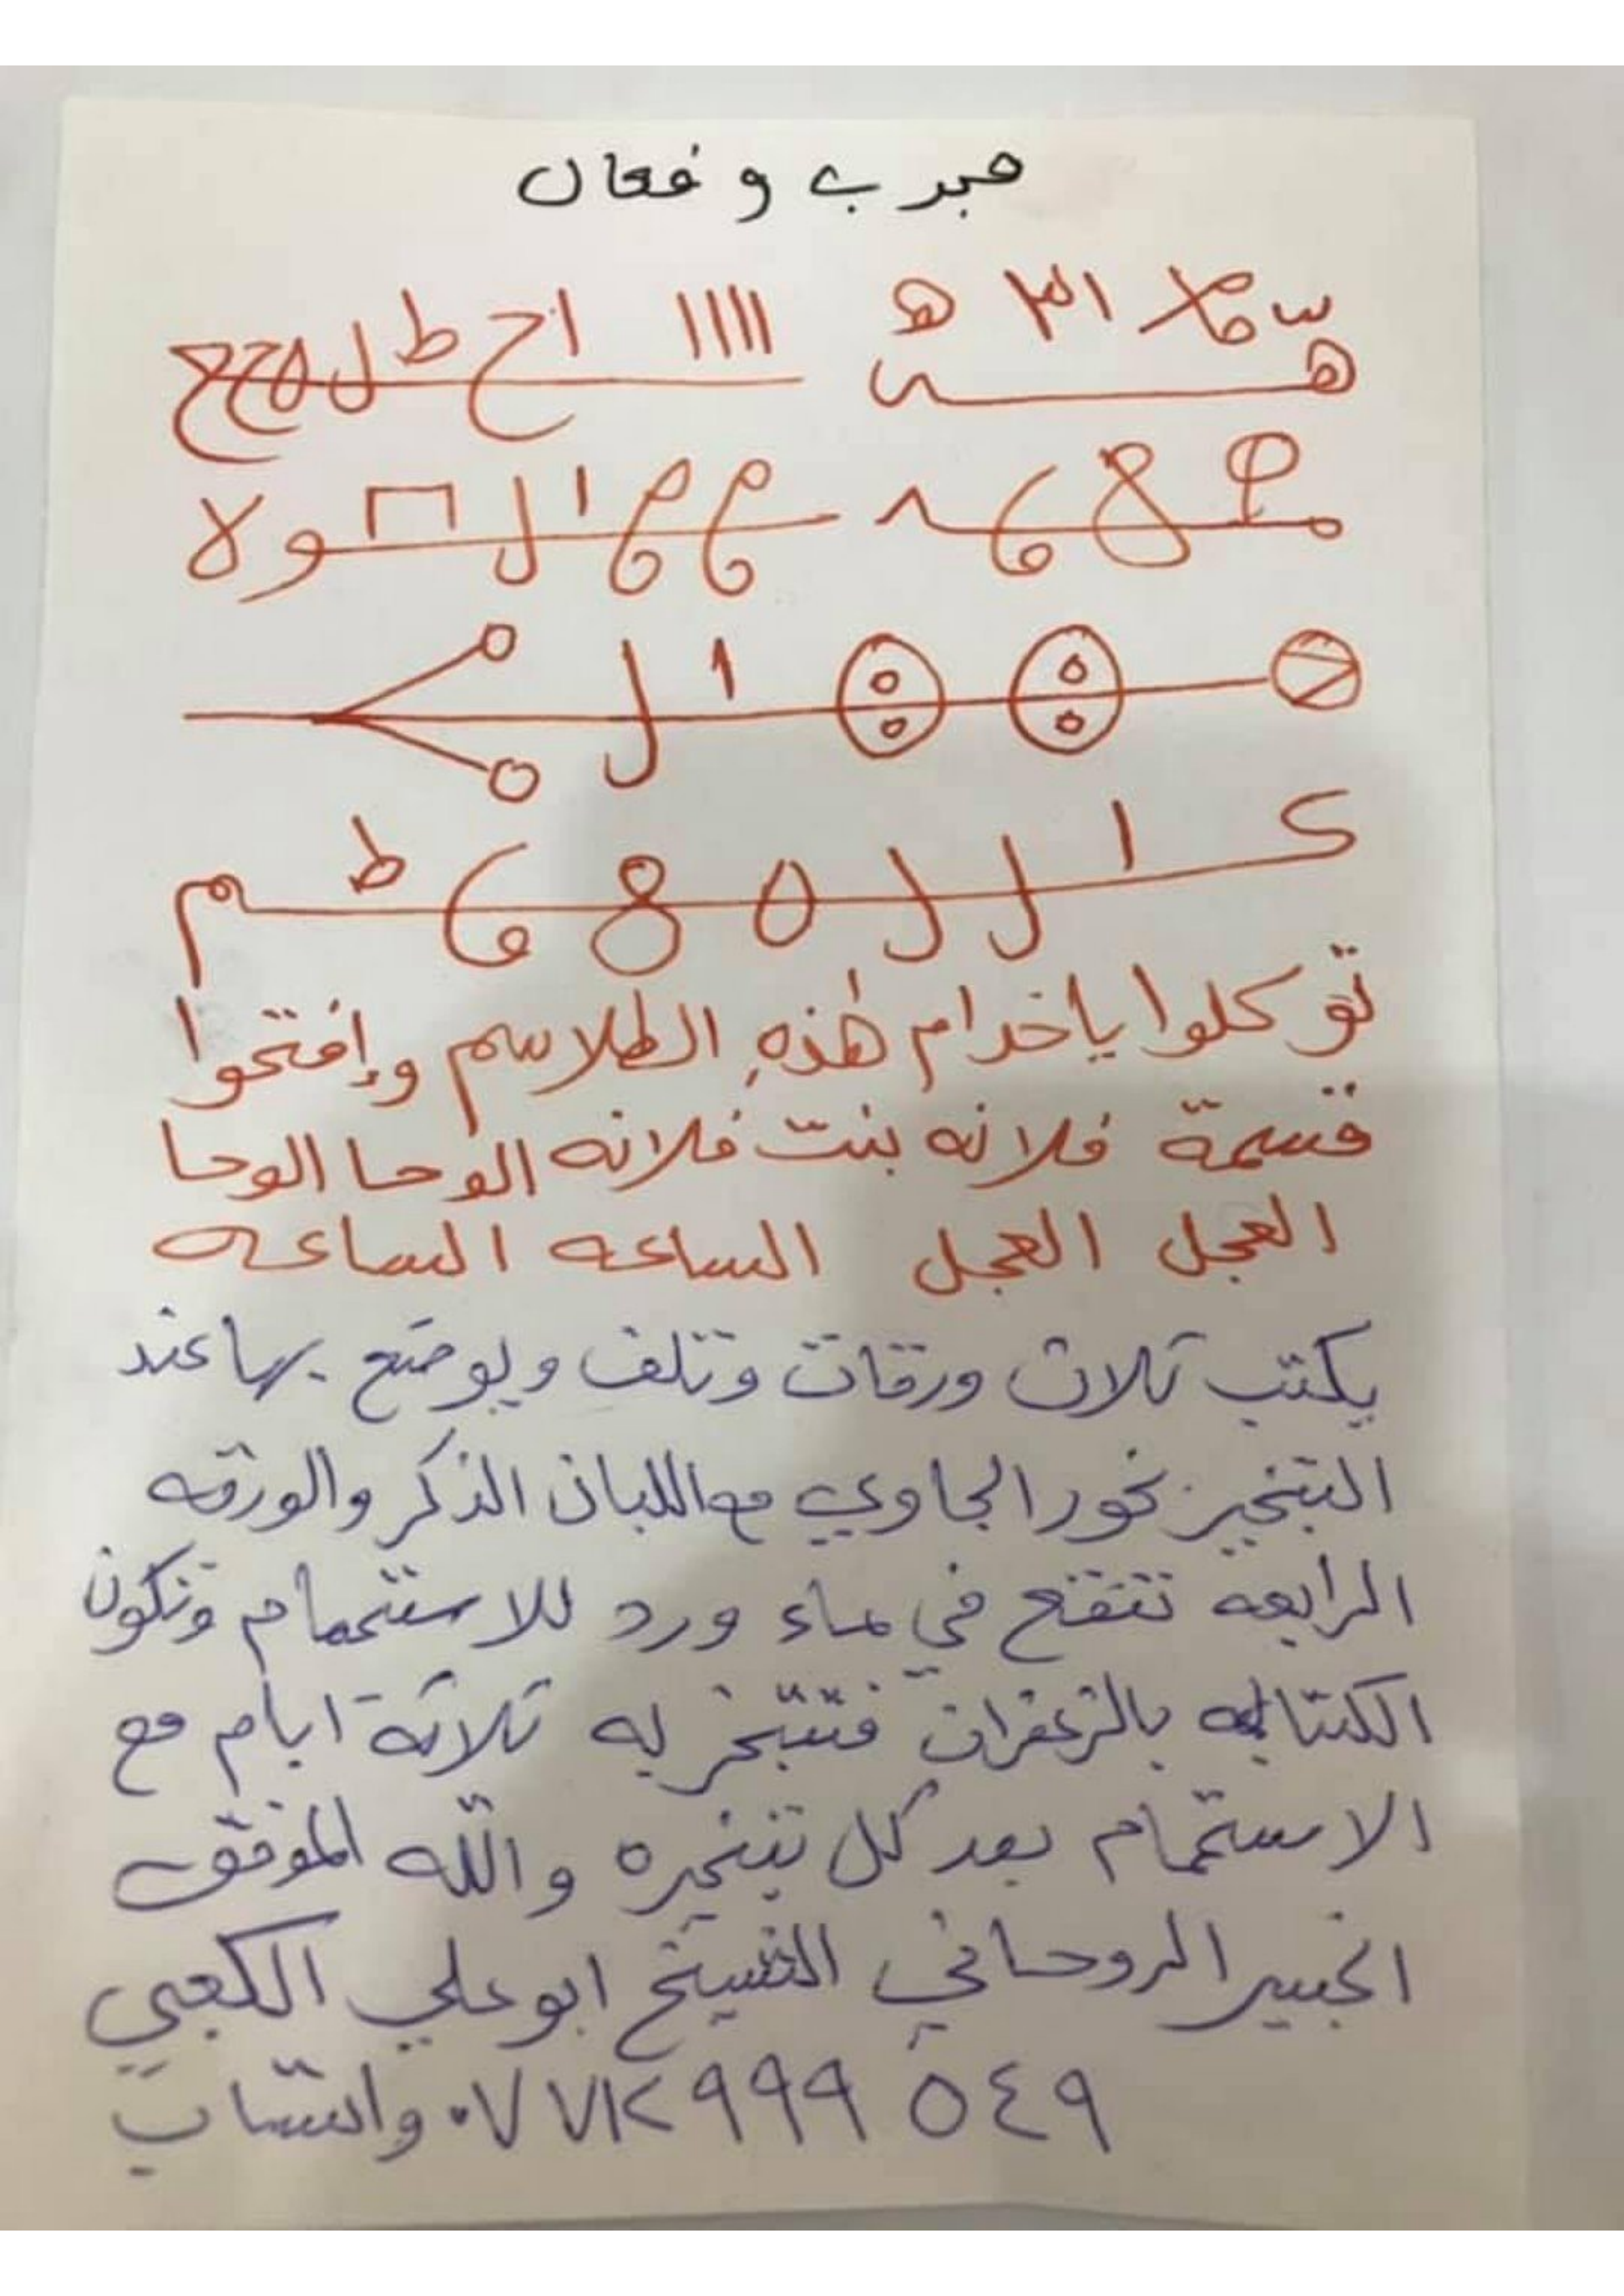 مجرب وفعال
١١١١ ا ح ط ل
ا ل ولا
ا ل
ك ا ل ل ه 8 ع ط م
توكلوا ياخدام هٰذهِ الطلاسم وإفتحوا
قسمة فلانه بنت فلانه الوحا الوحا
العجل العجل الساعه الساعه
يكتب ثلاث ورقات وتلف ويوضع بها عند
التبخير بخور الجاوي مع اللبان الذكر والورقه
الرابعه تنقع في ماء ورد للاستحمام وتكون
الكتابه بالزعفران فتتبخر به ثلاثة ايام مع
الاستحمام بعد كل تبخيره والله الموفق
الخبير الروحاني الشيخ ابو علي الكعبي
٠٧٧١٢٩٩٩٥٤٩ واتساب